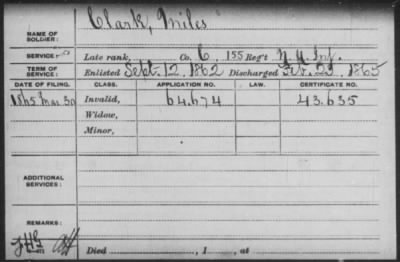 NAME OF SOLDIER: Clark, Miles
SERVICE: Late rank, Co. C, 155 Reg't N.Y. Inf.
TERM OF SERVICE: Enlisted Sept. 12, 1862 Discharged Feb. 23, 1865
DATE OF FILING. CLASS. APPLICATION NO. LAW. CERTIFICATE NO.
1865 Mar 30 Invalid, 64.674 43.635
Widow,
Minor,
ADDITIONAL SERVICES:
REMARKS:
Died , 1 , at